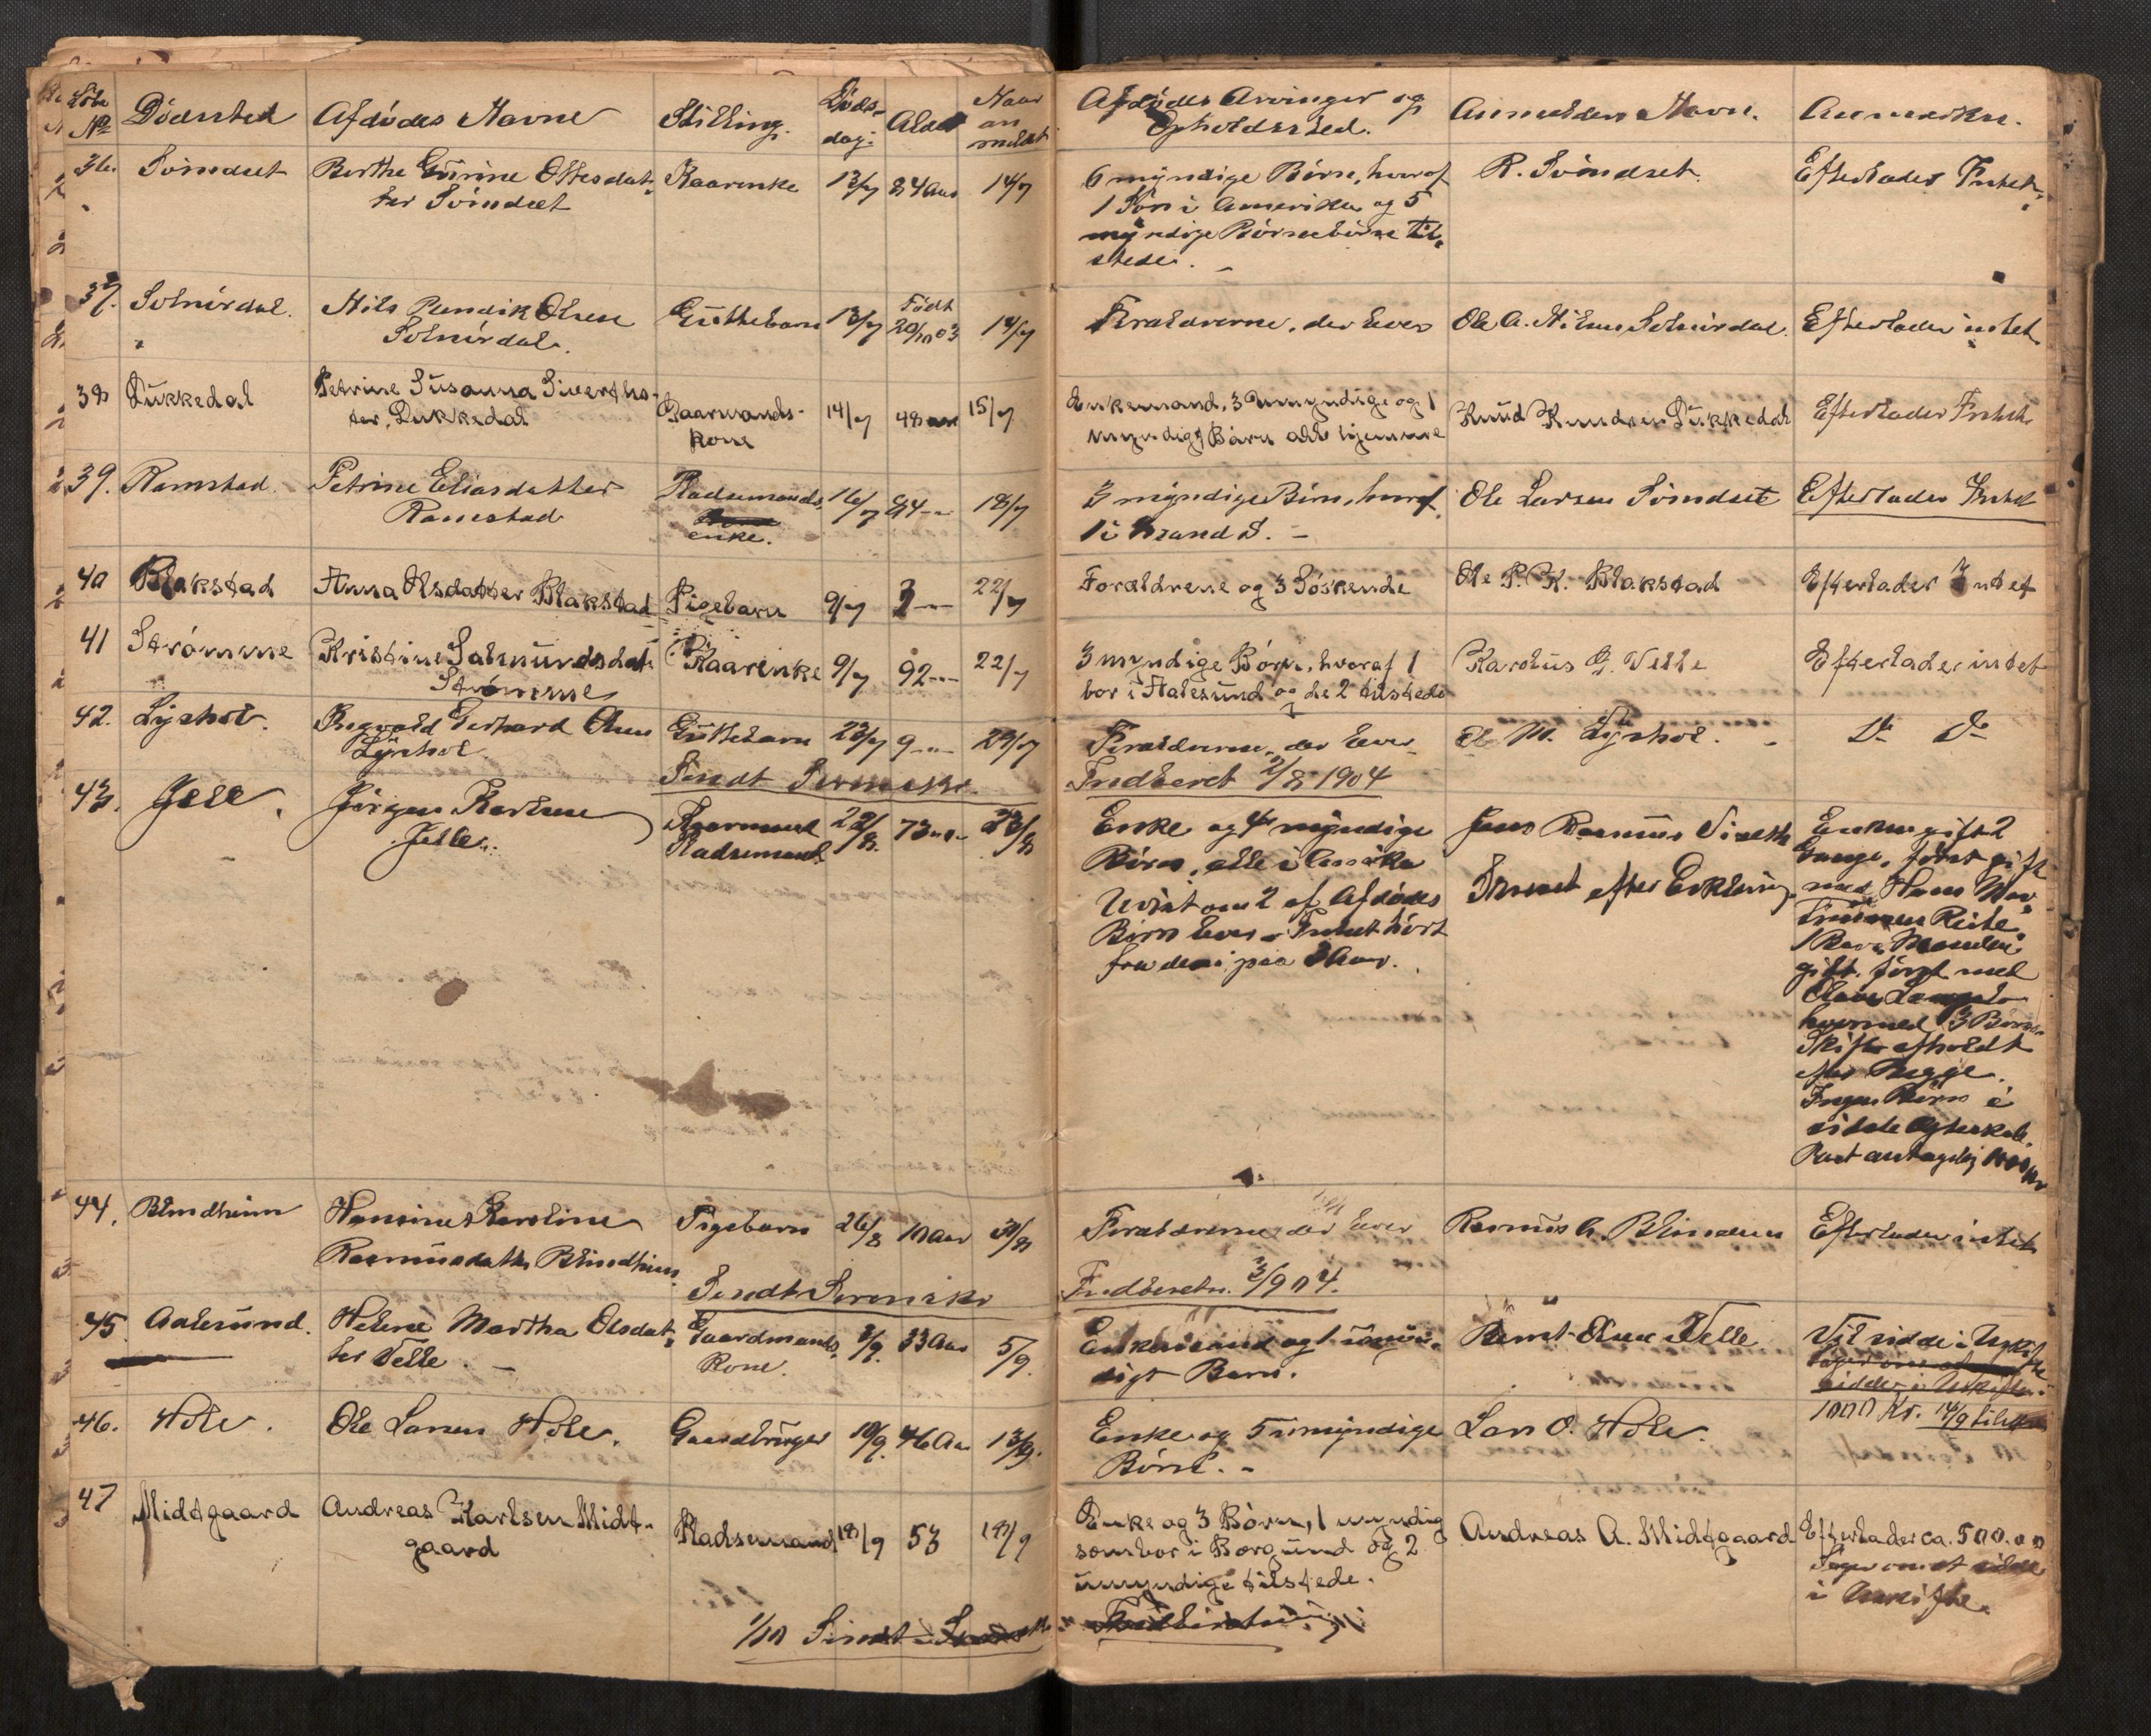 Løbe No Dødssted Afdødes Navne Stilling. Døds-dag: Alder Naar an meldt Afdødes Arvinger og Opholdssted. Anmelders Navn. Anmerkn.
36. Svindset Berthe Gurine Ottesdat- Kaarenke 13/7 84 Aar 14/7 6 myndige Børn, hvoraf R. Svindset. Efterlader Intet.
ter Svindset 1 Søn i Amerika og 5
myndige Børnebørn til-
stede.
37. Solnørdal. Nils Bendik Olsen Guttebarn 13/7 Født 20/10 03 14/7 Forældrene, der lever Ole A. Nilsen Solnørdal. Efterlader intet.
Solnørdal.
38 Lukkedal Petrine Susanna Siverths- Gaarmands- 14/7 48 aar 15/7 Enkemand, 3 umyndige og 1 Knud Knudsen Lukkedal Efterlader Intet.
ter, Lukkedal kone myndigt Barn alle hjemme
39. Ramstad. Petrine Eliasdatter Pladsmands 16/7 84 -"- 18/7 3 myndige Børn, hvoraf Ole Larsen Svindset Efterlader Intet
Ramstad enke. 1 i
40 Blakstad Anna Olsdatter Blakstad Pigebarn 9/7 3 -"- 22/7 Forældrene og 3 Søskende Ole P. K. Blakstad Efterlader Intet
41 Strømme Kristine Salmundsdat- Kaarenke 9/7 92 -"- 22/7 3 myndige Børn, hvoraf 1 Karolius G. Velle Efterlader intet
Strømme bor i Aalesund og de 2 tilstede
42. Lyshol. Ragvald Gerhard Olsen Guttebarn 23/7 9 -"- 29/7 Forældrene, der lever M. Lyshol. Do Do
Lyshol.
Sendt Sorenskr. Indberet 2/8 1904
43. Jelle. Jørgen Karlsen Kaarmand 22/8. 73 -"- 23/8 Enke og 4 myndige Jens Rasmus Viseth Enken gift 2
Jelle. Pladsmand Børn, alle i Amerika Gange, først gift
Uvist om 2 af Afdødes efter Erklæring med Hans
Børn lever - Intet hørt
fra dem paa Aar. gift først med
hvormed 3 Børn
Skifte afholdt
efter Begge.
Ingen Børn i
sidste Ægteskab.
antagelig
44. Blindheim Hansine Karoline Pigebarn 26/8 10 Aar 31/8 Forældrene, der lever Rasmus A. Blindheim Efterlader intet
Rasmusdatter Blindheim
Sendt Sorenskr Indberetn. 3/9 04.
45. Aalesund. Helene Martha Olsdat- Gaardmands 3/9. 33 Aar 5/9. Enkemand og 1 umyn- Bernt Olsen Velle Vil sidde i Uskifte
ter Velle. Kone. digt Barn. sidder i Uskifte.
46. Hole. Ole Larsen Hole. Gaardbruger 10/9. 46 Aar 13/9. Enke og 5 umyndige Lars O. Hole. 1000 Kr. 14/9
Børn.
47 Midtgaard Andreas Karlsen Midt- Pladsmand 18/9 53 19/9 Enke og 3 Børn, 1 myndig Andreas A. Midtgaard Efterlader ca. 500.00
gaard som bor i Borgund og 2 Søger om at sidde
umyndige tilstede. i Uskifte.
1/10 Sendt